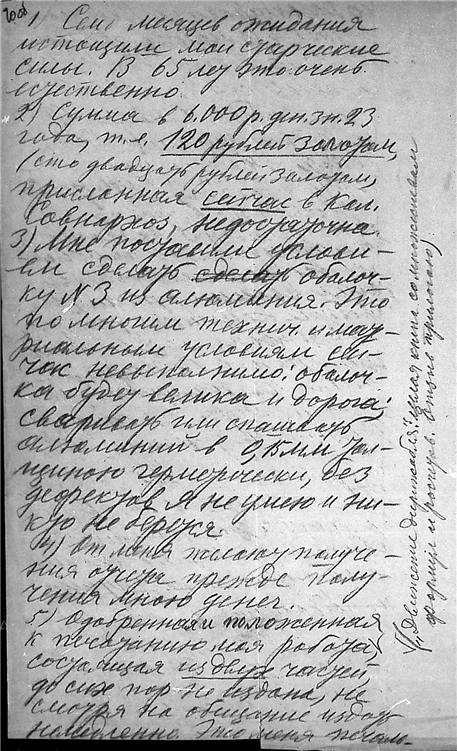 1) Семь месяцев ожидания
истощили мои старческие
силы. В 65 лет это очень
естественно.
2) Сумма в 6.000 р. ден. зн. 23
года, т.-е. 120 рублей золотом,
(сто двадцать рублей золотом,
присланная сейчас в Кал.
Совнархоз, недостаточна
3) Мне поставили услови-
ем сделать сделать оболоч-
ку N 3 из алюминия. Это
по многим технич. и мате-
риальным условиям сей-
час невыполнимо: оболоч-
ка будет велика и дорога;
сваривать или спаивать
алюминий в тол-
щиною герметрически, без
дефектов я не умею и ни-
кто не берется
4) От меня желают получе-
ния отчета прежде полу-
чения мною денег.
5) Одобренная и положенная
к печатанию моя работа,
состоящая из двух частей,
до сих пор не издана, не
смотря на обещание издать
немедленно. Это меня
("Движение дирижабля": целая книга со множеством
формул и расчетов.